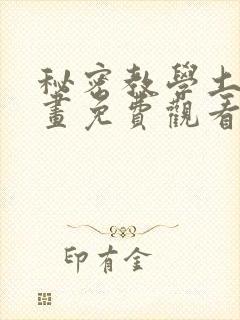 秘密教學土
畫免費觀看
印有金